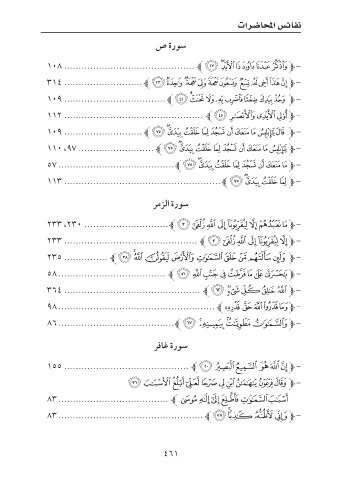 نفائس المحاضرات
سورة ص
- ﴿ وَاذْكُرْ عَبْدَنَا دَاوُودَ ذَا الْأَيْدِ ۖ ﴾ ١٠٨
- ﴿ إِنَّ هَٰذَا أَخِي لَهُ تِسْعٌ وَتِسْعُونَ نَعْجَةً وَلِيَ نَعْجَةٌ وَاحِدَةٌ ﴿٢٣﴾ ﴾ ٣١٤
- ﴿ وَخُذْ بِيَدِكَ ضِغْثًا فَاضْرِبْ بِهِ وَلَا تَحْنَثْ ۗ ﴿٤٤﴾ ﴾ ١٠٩
- ﴿ أُولِي الْأَيْدِي وَالْأَبْصَارِ ﴿٤٥﴾ ﴾ ١١٢
- ﴿ قَالَ يَا إِبْلِيسُ مَا مَنَعَكَ أَنْ تَسْجُدَ لِمَا خَلَقْتُ بِيَدَيَّ ۖ ﴿٧٥﴾ ﴾ ١٠٩
- ﴿ يَا إِبْلِيسُ مَا مَنَعَكَ أَنْ تَسْجُدَ لِمَا خَلَقْتُ بِيَدَيَّ ۖ ﴿٧٥﴾ ﴾ ٩٧، ١١٠
- ﴿ مَا مَنَعَكَ أَنْ تَسْجُدَ لِمَا خَلَقْتُ بِيَدَيَّ ۖ ﴿٧٥﴾ ﴾ ٥٧
- ﴿ لِمَا خَلَقْتُ بِيَدَيَّ ۖ ﴿٧٥﴾ ﴾ ١١٣
سورة الزمر
- ﴿ مَا نَعْبُدُهُمْ إِلَّا لِيُقَرِّبُونَا إِلَى اللَّهِ زُلْفَىٰ ﴿٣﴾ ﴾ ٢٣٠، ٢٣٣
- ﴿ إِلَّا لِيُقَرِّبُونَا إِلَى اللَّهِ زُلْفَىٰ ﴿٣﴾ ﴾ ٢٣٣
- ﴿ وَلَئِنْ سَأَلْتَهُمْ مَنْ خَلَقَ السَّمَاوَاتِ وَالْأَرْضَ لَيَقُولُنَّ اللَّهُ ۚ ﴿٣٨﴾ ﴾ ٢٣٥
- ﴿ يَا حَسْرَتَا عَلَىٰ مَا فَرَّطْتُ فِي جَنْبِ اللَّهِ ﴿٥٦﴾ ﴾ ٥٨
- ﴿ اللَّهُ خَالِقُ كُلِّ شَيْءٍ ۖ ﴿٦٢﴾ ﴾ ٣٦٤
- ﴿ وَمَا قَدَرُوا اللَّهَ حَقَّ قَدْرِهِ ﴾ ٩٨
- ﴿ وَالسَّمَاوَاتُ مَطْوِيَّاتٌ بِيَمِينِهِ ۚ ﴿٦٧﴾ ﴾ ٨٦
سورة غافر
- ﴿ إِنَّ اللَّهَ هُوَ السَّمِيعُ الْبَصِيرُ ﴿٢٠﴾ ﴾ ١٥٥
- ﴿ وَقَالَ فِرْعَوْنُ يَا هَامَانُ ابْنِ لِي صَرْحًا لَعَلِّي أَبْلُغُ الْأَسْبَابَ ﴿٣٦﴾
أَسْبَابَ السَّمَاوَاتِ فَأَطَّلِعَ إِلَىٰ إِلَٰهِ مُوسَىٰ ﴾ ٨٣
- ﴿ وَإِنِّي لَأَظُنُّهُ كَاذِبًا ۚ ﴿٣٧﴾ ﴾ ٨٣
٤٦١